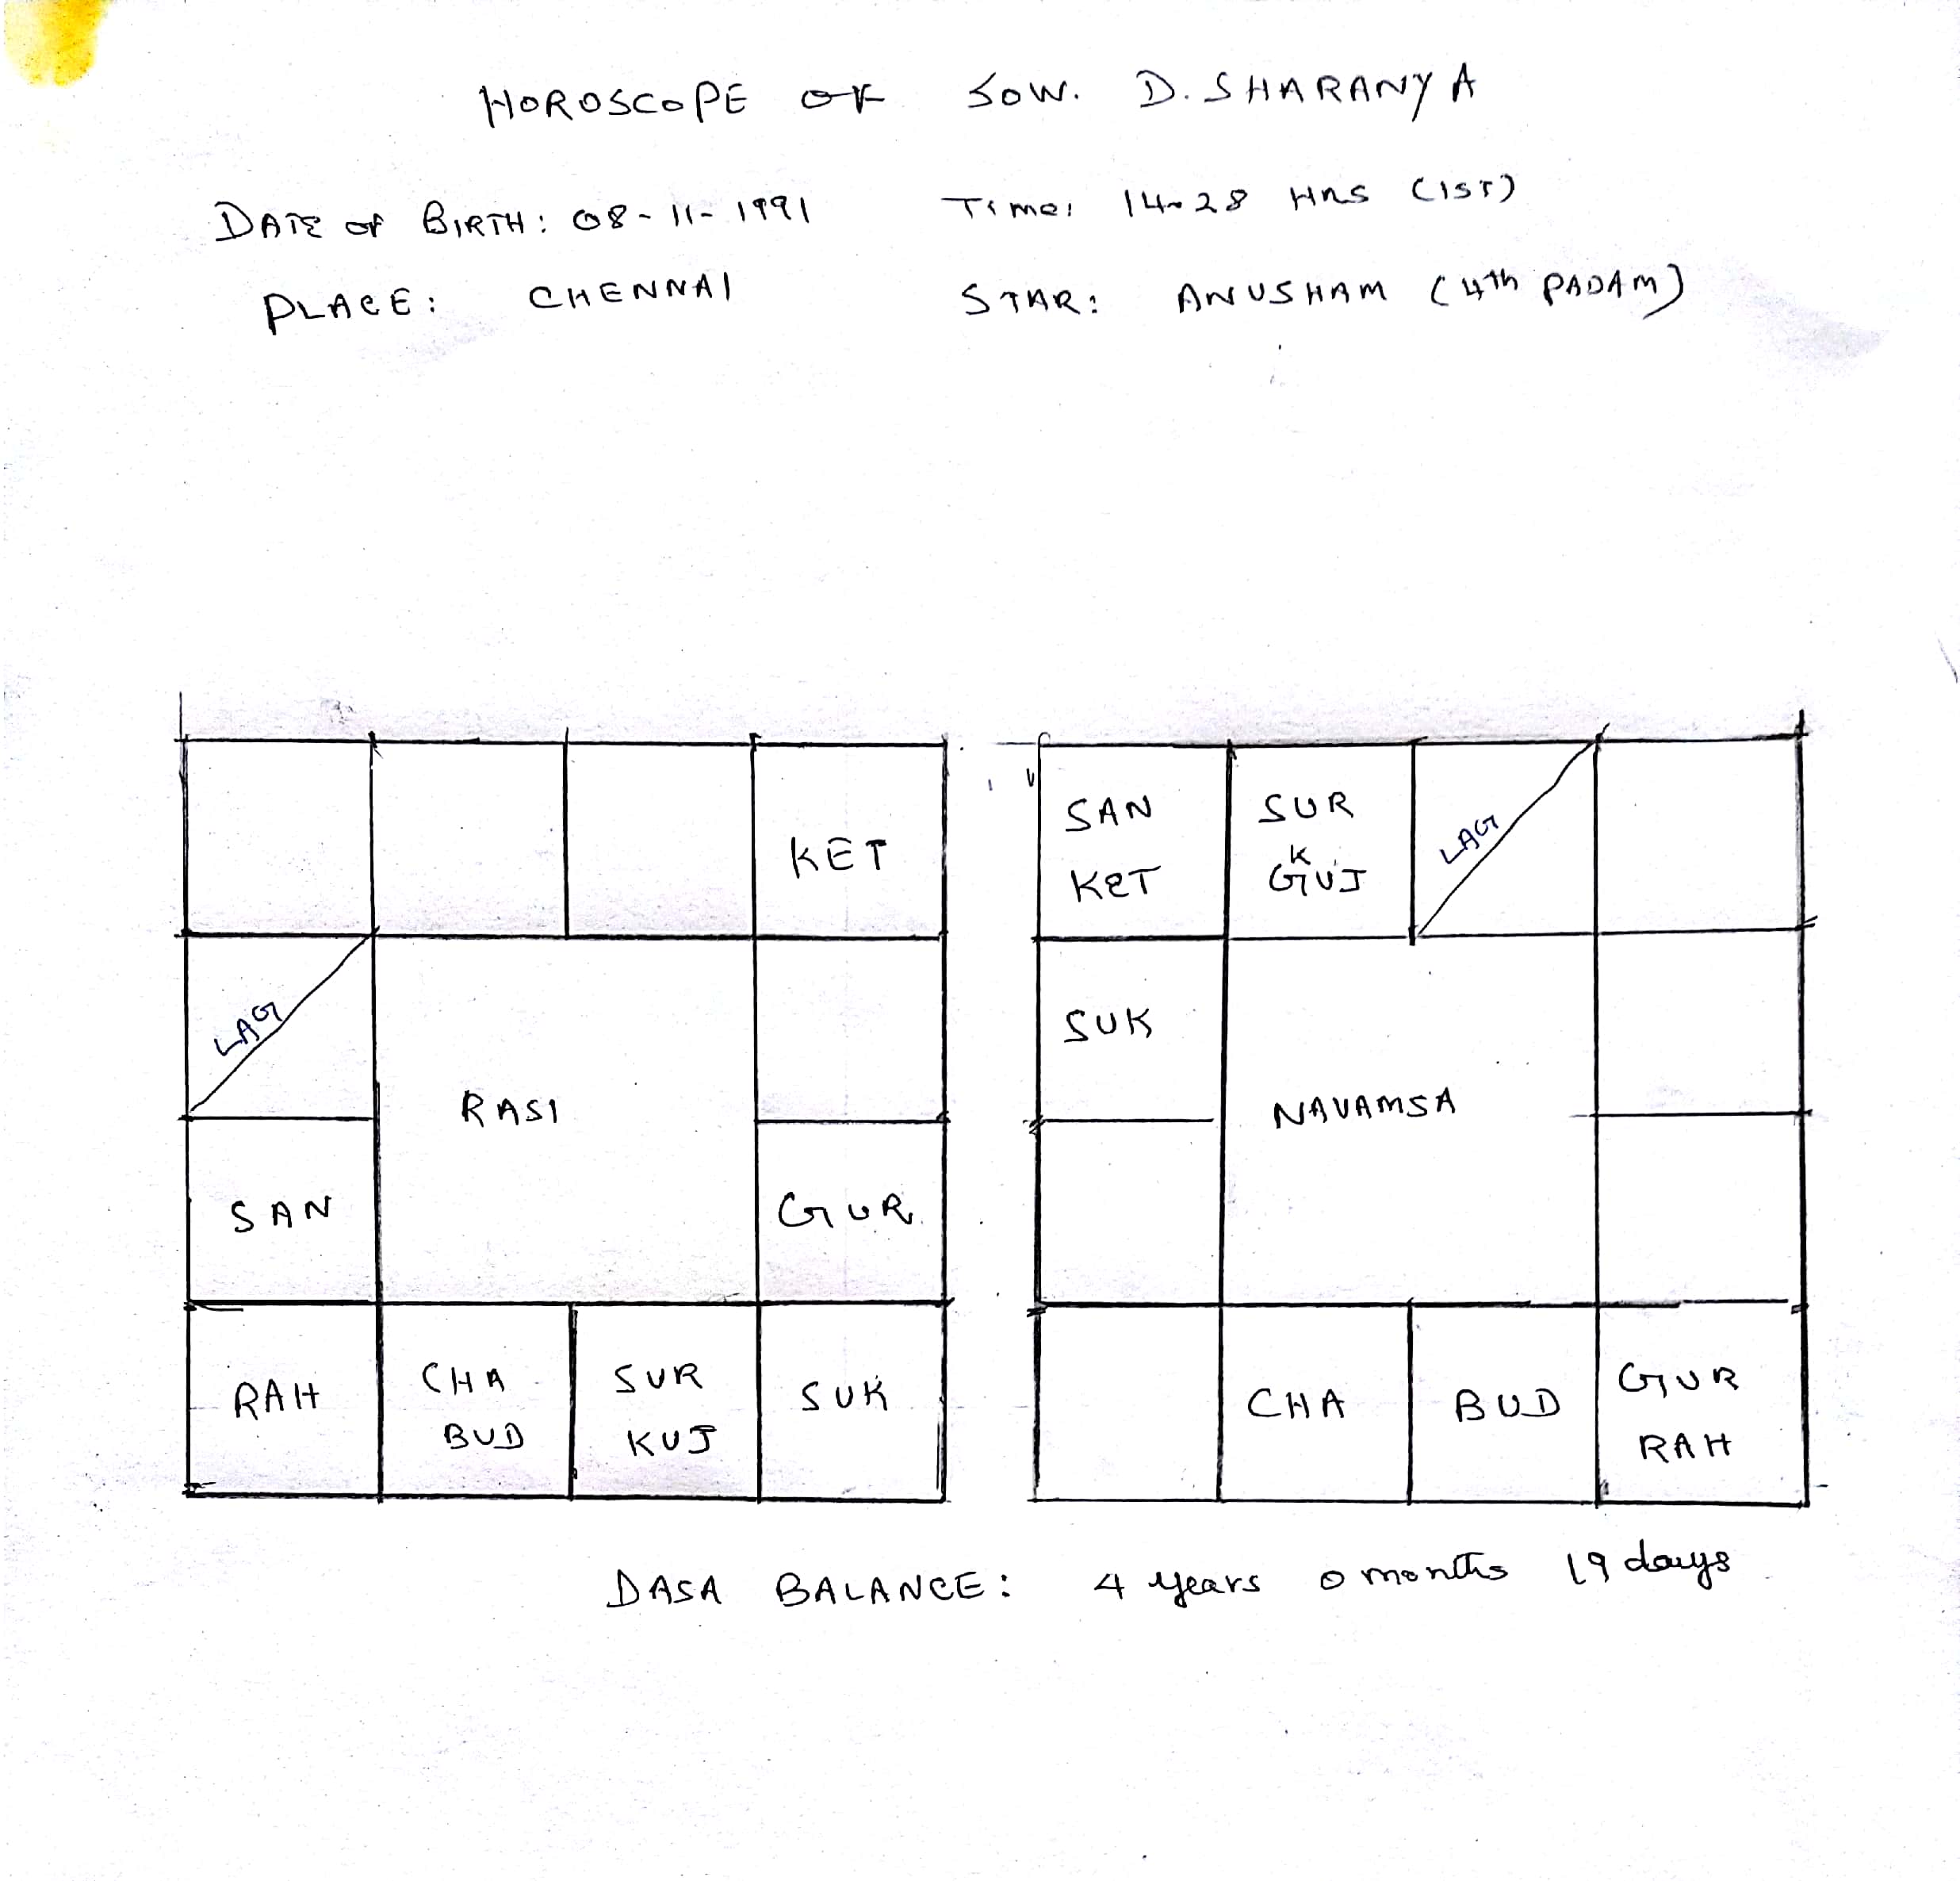 HOROSCOPE OF SOW. D. SHARANYA
DATE OF BIRTH: 08-11-1991 Time: 14-28 HRS (IST)
PLACE: CHENNAI STAR: ANUSHAM (4th PADAM)
KET
LAG
RASI
SAN
GUR
RAH
CHA
BUD
SUR
KUJ
SUK
SAN
KET
SUR
K
GUJ
LAG
SUK
NAVAMSA
CHA
BUD
GUR
RAH
DASA BALANCE: 4 years 0 months 19 days